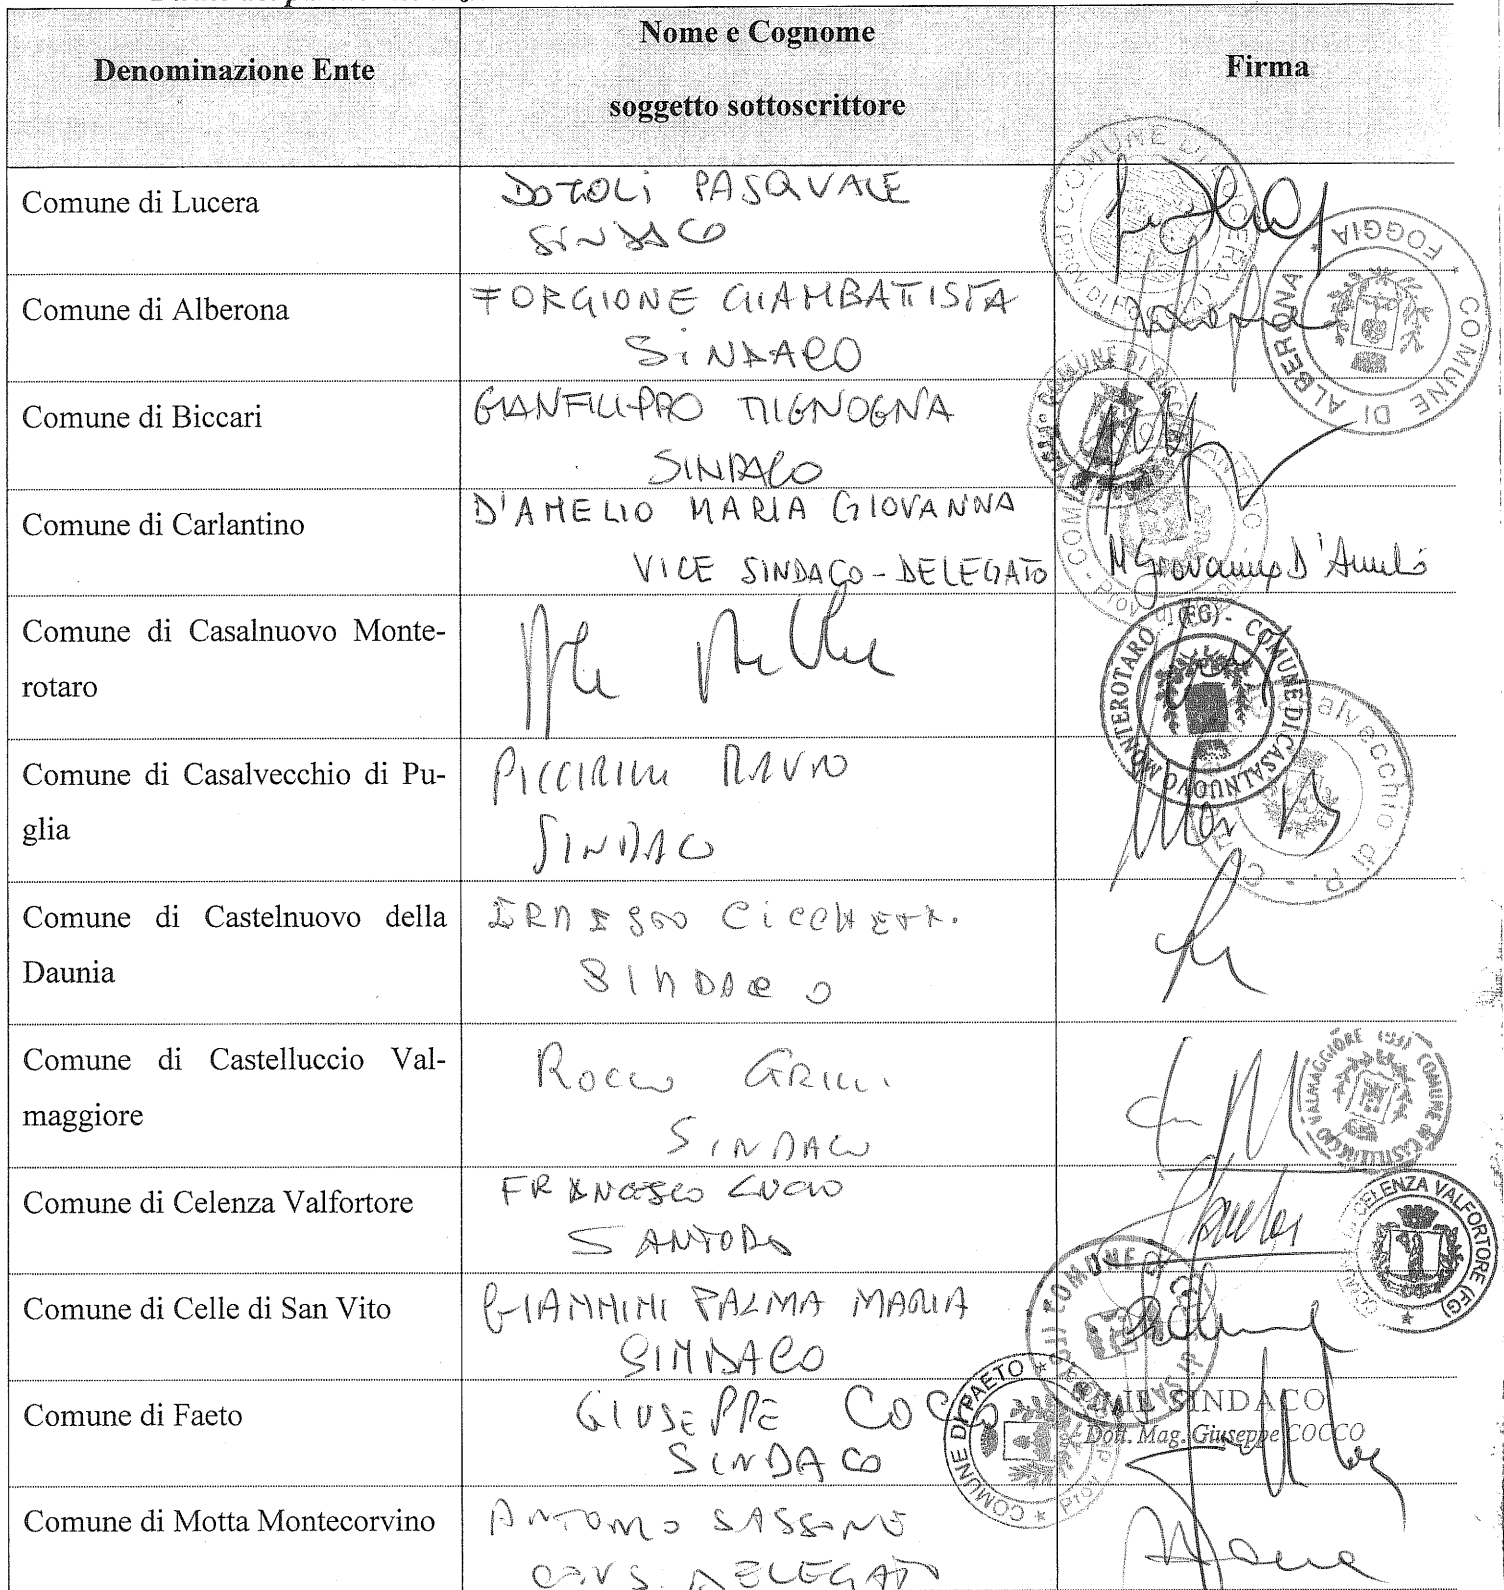 Denominazione Ente
Nome e Cognome
soggetto sottoscrittore
Firma
Comune di Lucera
DOTOLI PASQUALE
SINDACO
Comune di Alberona
FORGIONE GIAMBATTISTA
SINDACO
COMUNE DI ALBERONA * FOGGIA *
Comune di Biccari
GIANFILIPPO MIGNOGNA
SINDACO
Comune di Carlantino
D'AMELIO MARIA GIOVANNA
VICE SINDACO - DELEGATO
M Giovanna D'Amelio
Comune di Casalnuovo Monte-
rotaro
COMUNE DI CASALNUOVO MONTEROTARO (FG) -
Comune di Casalvecchio di Pu-
glia
SINDACO
Comune di Castelnuovo della
Daunia
SINDACO
Comune di Castelluccio Val-
maggiore
ROCCO GRILLI
SINDACO
Comune di Celenza Valfortore
FRANCESCO LUCIO
SANTORO
CELENZA VALFORTORE (FG) *
Comune di Celle di San Vito
GIANNINI PALMA MARIA
SINDACO
Comune di Faeto
GIUSEPPE COCCO
SINDACO
COMUNE DI FAETO *
SINDACO
Dott. Mag. Giuseppe COCCO
Comune di Motta Montecorvino
ANTONIO SASSONE
CONS. DELEGATO